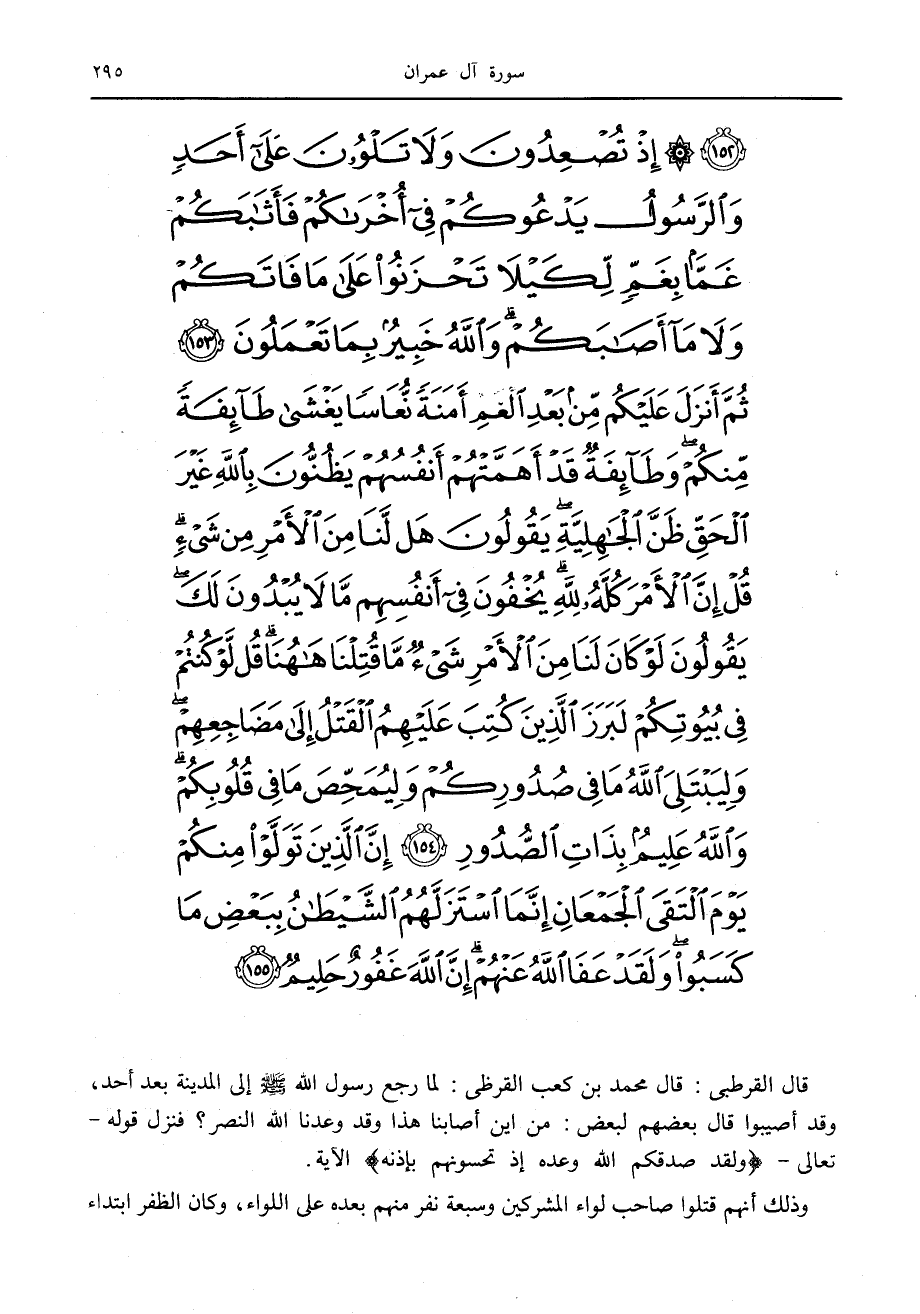 سورة آل عمران ٢٩٥
﴿١٥٢﴾ ۞ إِذْ تُصْعِدُونَ وَلَا تَلْوُۥنَ عَلَىٰٓ أَحَدٍ
وَٱلرَّسُولُ يَدْعُوكُمْ فِىٓ أُخْرَىٰكُمْ فَأَثَٰبَكُمْ
غَمًّۢا بِغَمٍّ لِّكَيْلَا تَحْزَنُوا۟ عَلَىٰ مَا فَاتَكُمْ
وَلَا مَآ أَصَٰبَكُمْ ۗ وَٱللَّهُ خَبِيرٌۢ بِمَا تَعْمَلُونَ ﴿١٥٣﴾
ثُمَّ أَنزَلَ عَلَيْكُم مِّنۢ بَعْدِ ٱلْغَمِّ أَمَنَةً نُّعَاسًا يَغْشَىٰ طَآئِفَةً
مِّنكُمْ ۖ وَطَآئِفَةٌ قَدْ أَهَمَّتْهُمْ أَنفُسُهُمْ يَظُنُّونَ بِٱللَّهِ غَيْرَ
ٱلْحَقِّ ظَنَّ ٱلْجَٰهِلِيَّةِ ۖ يَقُولُونَ هَل لَّنَا مِنَ ٱلْأَمْرِ مِن شَىْءٍ ۗ
قُلْ إِنَّ ٱلْأَمْرَ كُلَّهُۥ لِلَّهِ ۗ يُخْفُونَ فِىٓ أَنفُسِهِم مَّا لَا يُبْدُونَ لَكَ ۖ
يَقُولُونَ لَوْ كَانَ لَنَا مِنَ ٱلْأَمْرِ شَىْءٌ مَّا قُتِلْنَا هَٰهُنَا ۗ قُل لَّوْ كُنتُمْ
فِى بُيُوتِكُمْ لَبَرَزَ ٱلَّذِينَ كُتِبَ عَلَيْهِمُ ٱلْقَتْلُ إِلَىٰ مَضَاجِعِهِمْ ۖ
وَلِيَبْتَلِىَ ٱللَّهُ مَا فِى صُدُورِكُمْ وَلِيُمَحِّصَ مَا فِى قُلُوبِكُمْ ۗ
وَٱللَّهُ عَلِيمٌۢ بِذَاتِ ٱلصُّدُورِ ﴿١٥٤﴾ إِنَّ ٱلَّذِينَ تَوَلَّوْا۟ مِنكُمْ
يَوْمَ ٱلْتَقَى ٱلْجَمْعَانِ إِنَّمَا ٱسْتَزَلَّهُمُ ٱلشَّيْطَٰنُ بِبَعْضِ مَا
كَسَبُوا۟ ۖ وَلَقَدْ عَفَا ٱللَّهُ عَنْهُمْ ۗ إِنَّ ٱللَّهَ غَفُورٌ حَلِيمٌ ﴿١٥٥﴾
قال القرطبى : قال محمد بن كعب القرظى : لما رجع رسول الله ﷺ إلى المدينة بعد أحد،
وقد أصيبوا قال بعضهم لبعض : من اين أصابنا هذا وقد وعدنا الله النصر؟ فنزل قوله -
تعالى - ﴿ولقد صدقكم الله وعده إذ تحسونهم بإذنه﴾ الآية .
وذلك أنهم قتلوا صاحب لواء المشركين وسبعة نفر منهم بعده على اللواء، وكان الظفر ابتداء